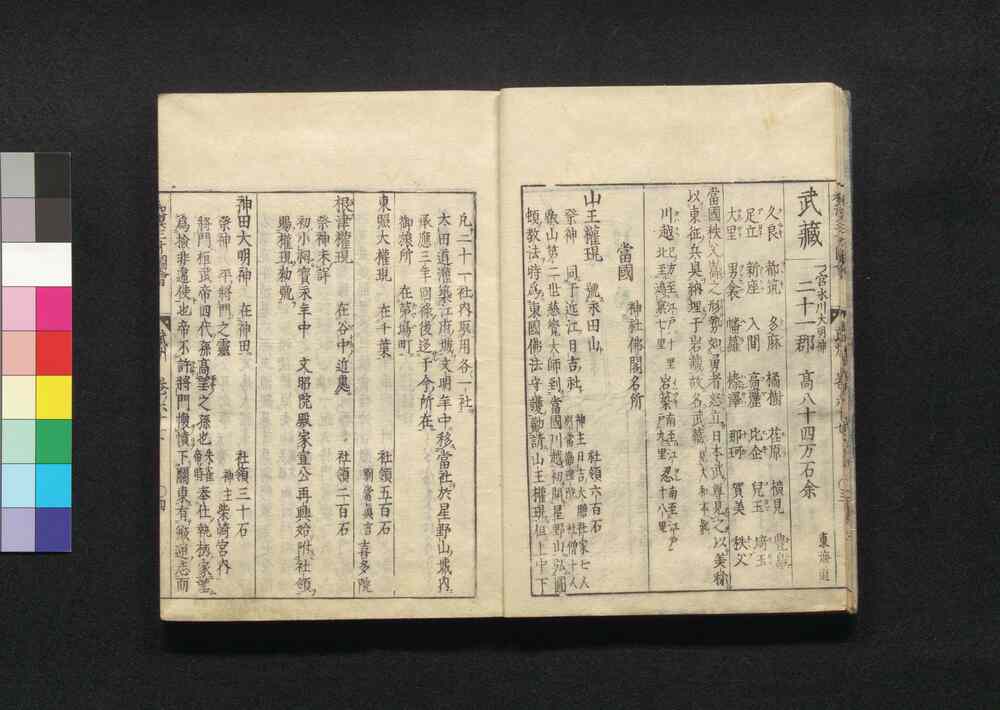 武藏
一宮氷川大明神
二十一郡 高八十四万石余
東海道
久良 都筑 多麻 橘樹 荏原 橫見 豐島
足立 新座 入間 高麗 比企 兒玉 埼玉
大里 男衾 幡羅 榛澤 那珂 賀美 秩父
當國秩父嶽之形勢如勇者怒立日本武尊見之以美
以東征兵具納埋于岩藏故名武藏
當國 神社佛閣名所
山王權現 號永田山 社領六百石
祭神 同于近江日吉社
叡山第二世慈覺大師到當國川越初開星野山弘圓
頓教法時爲東國佛法守護勸請山王權現但上中下
凡二十一社內取用谷一社
太田道灌築江府城文明年中移當社於星野山城內
承應三年回祿後迻于今所在
御旅所 在茅場町
東照大權現 在千葉 社領五百石
別當眞言 喜多院
根津權現 在谷中近處 社領二百石
祭神未詳
初小祠寳永年中 文昭院殿家宣公再興始附社領
賜權現勅號
神田大明神 在神田 社領三十石
祭神 平將門之靈 神主柴崎宮內
將門桓武帝四代孫高望之孫也朱雀帝時奉仕執柄家望
爲檢非違使也帝不許將門懷憤下關東有叛逆志而